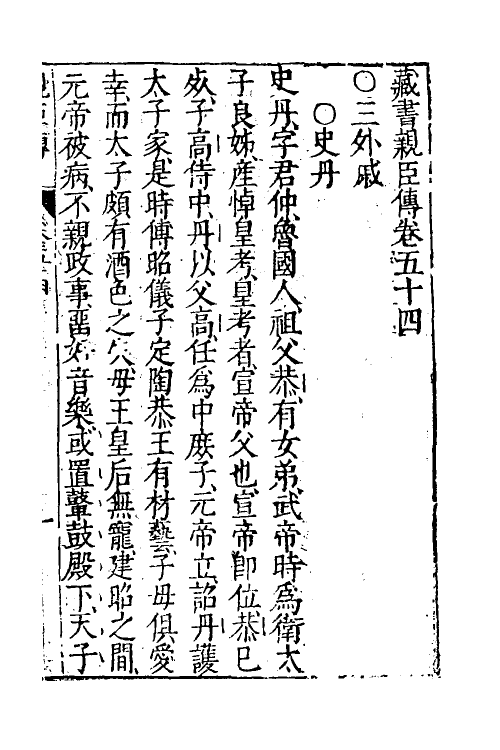 藏書親臣傳卷五十四
○三外戚
○史丹
史丹字君仲魯國人祖父恭有女弟武帝時爲衛太
子良娣產悼皇考皇考者宣帝父也宣帝卽位恭已
死子高侍中丹以父高任爲中庶子元帝立詔丹護
太子家是時傅昭儀子定陶恭王有材藝子母俱愛
幸而太子頗有酒色之失母王皇后無寵建昭之間
元帝被病不親政事畱好音樂或置鼙鼓殿下天子